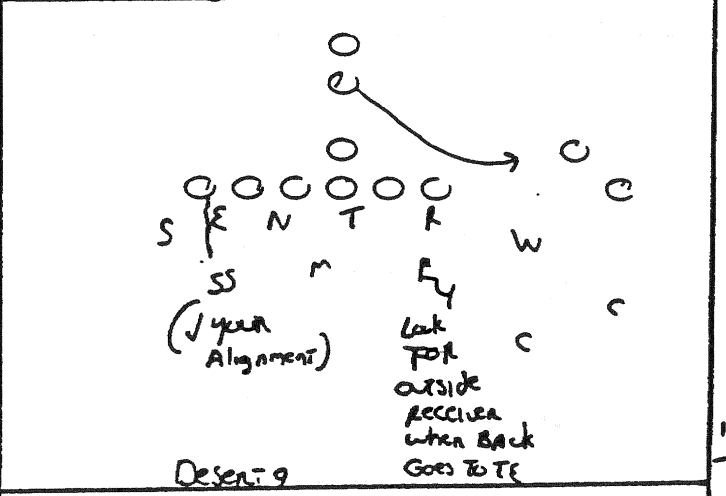 S E N T R W
SS M F C
C
(√ your
Alignment)
Look
FOR
outside
Receiver
when BACK
Goes To TE
Desert 9